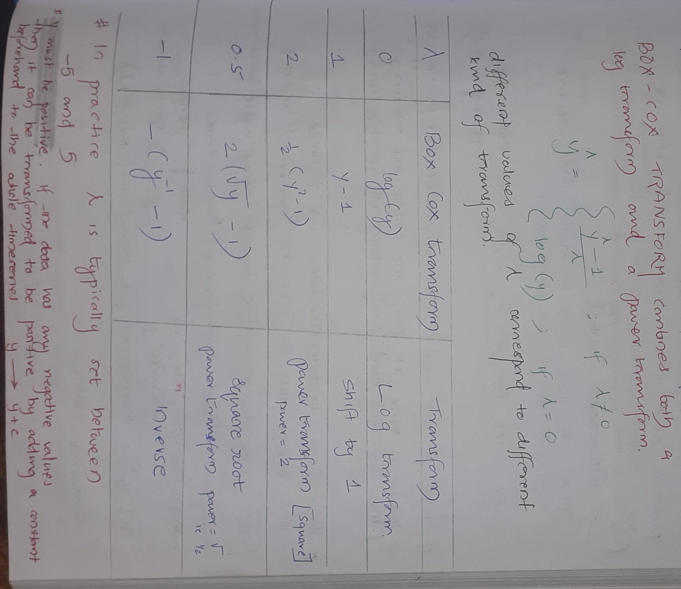 BOX-COX TRANSFORM combines both a
log transform and a power transform.
y^λ = { (y^λ - 1)/λ ; if λ ≠ 0
{ log(y) ; if λ = 0
different values of λ correspond to different
kind of transform.
λ | Box Cox transform | Transform
0 | log(y) | Log transform
1 | y-1 | Shift by 1
2 | ½ (y²-1) | Power transform [square]
power = 2
0.5 | 2(√y - 1) | square root
power transform power = √
ie ½
-1 | -(y⁻¹ - 1) | Inverse
# In practice λ is typically set between
-5 and 5
** y must be positive. If the data has any negative values
then it can be transformed to be positive by adding a constant
beforehand to the whole timeseries y → y+c